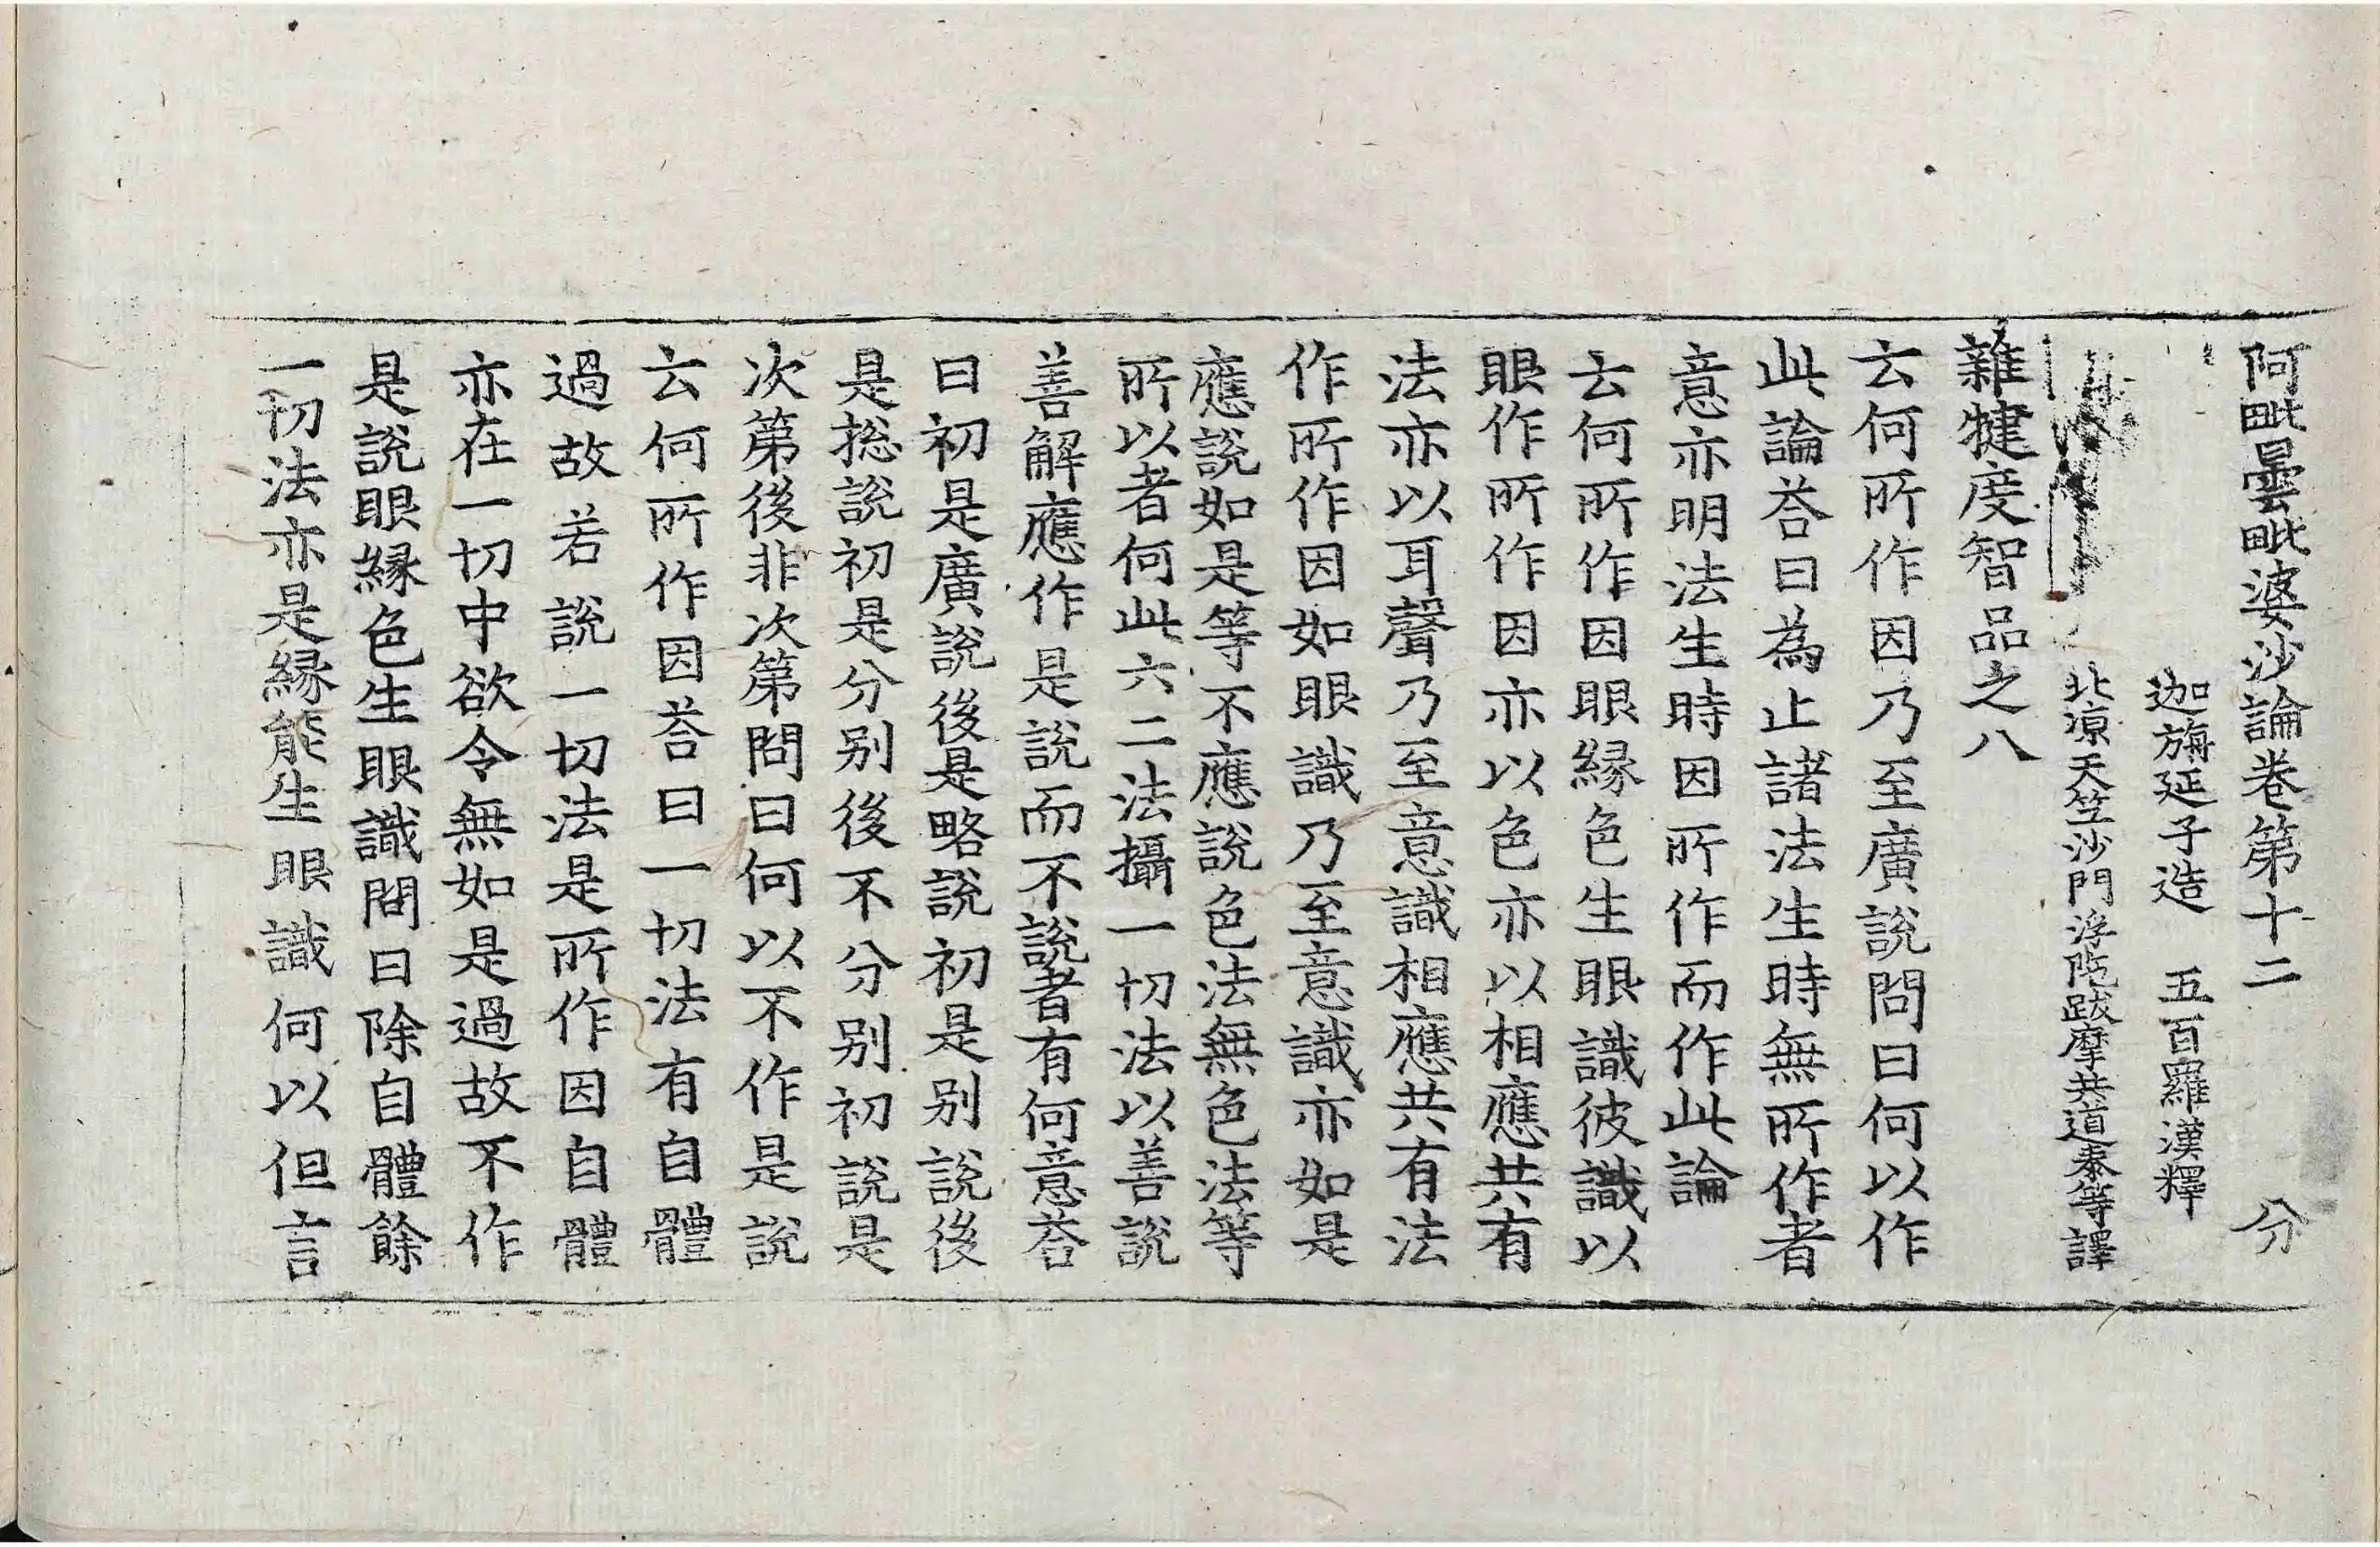 阿毗曇毗婆沙論卷第十二 分
迦旃延子造 五百羅漢釋
北凉天竺沙門浮陁跋摩共道泰等譯
雜犍度智品之八
云何所作因乃至廣說問曰何以作
此論荅曰為止諸法生時無所作者
意亦明法生時因所作而作此論
云何所作因眼縁色生眼識彼識以
眼作所作因亦以色亦以相應共有
法亦以耳聲乃至意識相應共有法
作所作因如眼識乃至意識亦如是
應說如是等不應說色法無色法等
所以者何此六二法攝一切法以善說
善解應作是說而不說者有何意荅
曰初是廣說後是略說初是别說後
是捴說初是分别後不分别初說是
次第後非次第問曰何以不作是說
云何所作因荅曰一切法有自體
過故若說一切法是所作因自體
亦在一切中欲令無如是過故不作
是說眼縁色生眼識問曰除自體餘
一切法亦是縁能生眼識何以但言